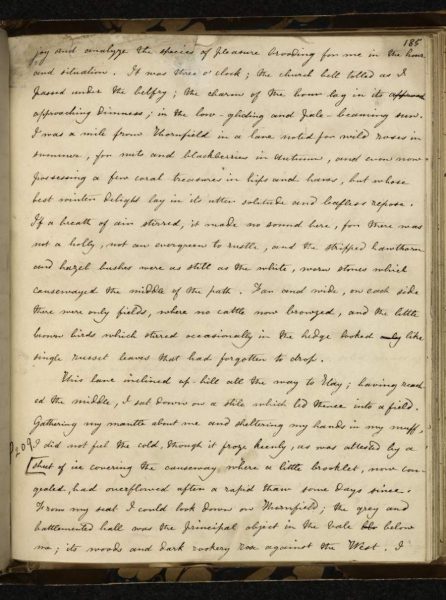 185
joy and analyze the species of pleasure brooding for me in the hour
and situation. It was three o'clock; the church bell tolled as I
passed under the belfry; the charm of the hour lay in its
approaching dimness; in the low-gliding and pale-beaming sun.
I was a mile from Thornfield in a lane noted for wild roses in
summer, for nuts and blackberries in Autumn, and even now
possessing a few coral treasures in hips and haws, but whose
best winter delight lay in its utter solitude and leafless repose.
If a breath of air stirred, it made no sound here, for there was
not a holly, not an evergreen to rustle, and the stripped hawthorn
and hazel bushes were as still as the white, worn stones which
causewayed the middle of the path. Far and wide, on each side
there were only fields, where no cattle now browzed, and the little
brown birds which stirred occasionally in the hedge looked like
single russet leaves that had forgotten to drop.
This lane inclined up-hill all the way to Hay; having reach-
ed the middle, I sat down on a stile which led thence into a field.
Gathering my mantle about me and sheltering my hands in my muff,
I did not feel the cold, though it froze keenly, as was attested by a
sheet of ice covering the causeway, where a little brooklet, now con-
gealed, had overflowed after a rapid thaw some days since.
From my seat I could look down on Thornfield; the grey and
battlemented hall was the principal object in the vale below
me; its woods and dark rookery rose against the West. I